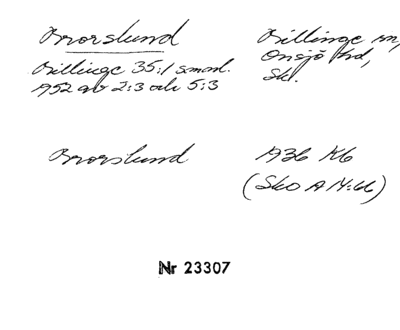 Brorslund
Billinge sn,
Onsjö hd,
Sk.
Billinge 35:1 samml.
1952 av 2:3 och 5:3
Brorslund
1936 Kb
(Sko A M:44)
Nr 23307